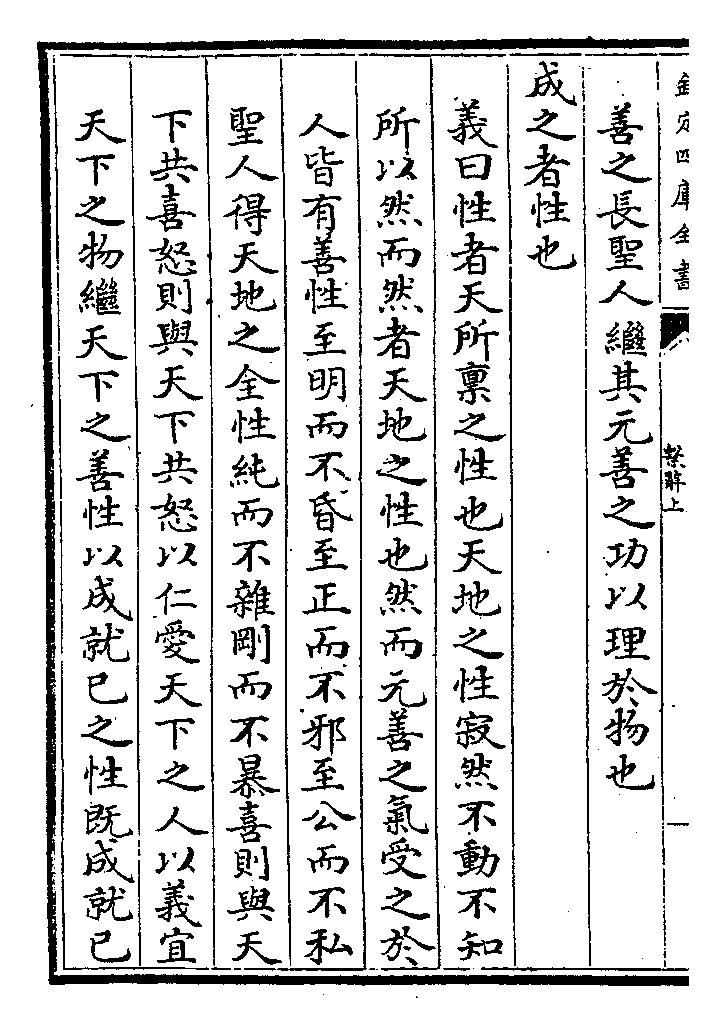 欽定四庫全書
繫辭上
善之長聖人繼其元善之功以理於物也
成之者性也
義曰性者天所禀之性也天地之性寂然不動不知
所以然而然者天地之性也然而元善之氣受之於
人皆有善性至明而不昏至正而不邪至公而不私
聖人得天地之全性純而不雜剛而不暴喜則與天
下共喜怒則與天下共怒以仁愛天下之人以義宜
天下之物繼天下之善性以成就已之性既成就已